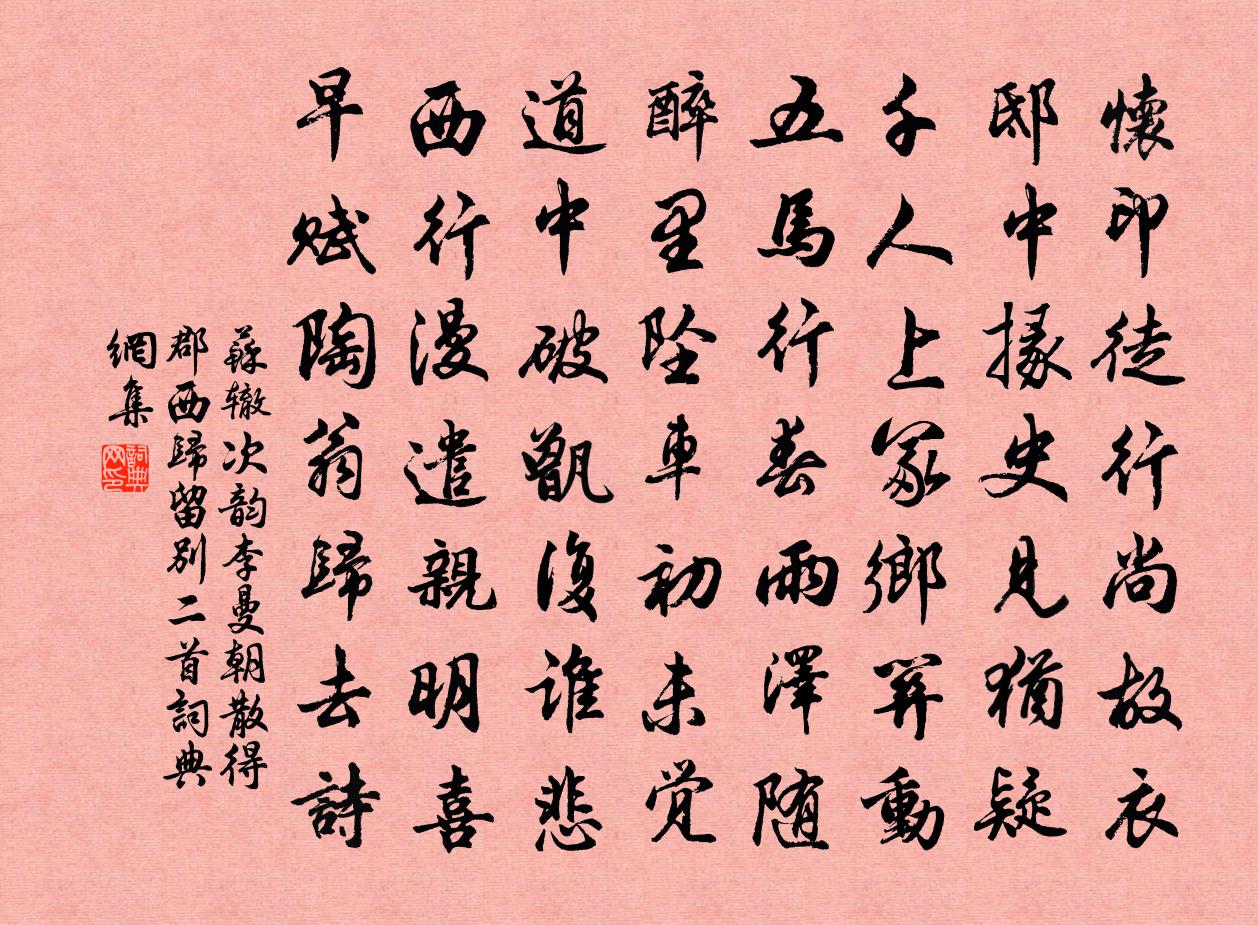 懷印徒行尚故衣
邸中掾史見猶疑
千人上冢鄉關動
五馬行春雨澤隨
醉里坠車初未觉
道中破甑復谁悲
西行漫遣親明喜
早赋陶翁歸去詩
蘇辙次韵李曼朝散得
郡西歸留别二首詞典
網集
詞典网印